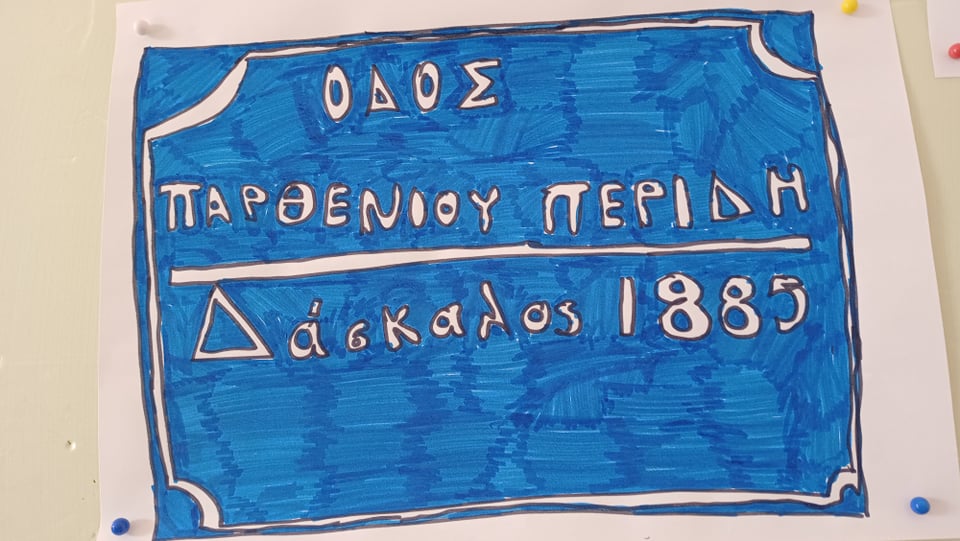 ΟΔΟΣ
ΠΑΡΘΕΝΙΟΥ ΠΕΡΙΔΗ
Δάσκαλος 1885